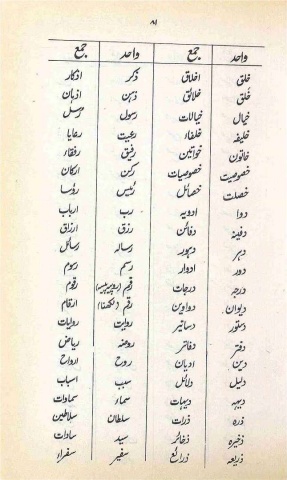 ۸۱
واحد جمع واحد جمع
خلق اخلاق ذکر اذکار
خَلق خلائق ذہن اذہان
خیال خیالات رسول رسل
خلیفہ خلفاء رعیت رعایا
خاتون خواتین رفیق رفقاء
خصوصیت خصوصیات رکن ارکان
خصلت خصائل رئیس رؤسا
دوا ادویہ رب ارباب
دفینہ دفائن رزق ارزاق
دہر دہور رسالہ رسائل
دور ادوار رسم رسوم
درجہ درجات رقم (روپیہ پیسہ) رقوم
دیوان دواوین رقم (لکھنا) ارقام
دستور دساتیر روایت روایات
دفتر دفاتر روضہ ریاض
دین ادیان روح ارواح
دلیل دلائل سبب اسباب
دیہہ دیہات سماء سماوات
ذرہ ذرات سلطان سلاطین
ذخیرہ ذخائر سید سادات
ذریعہ ذرائع سفیر سفراء